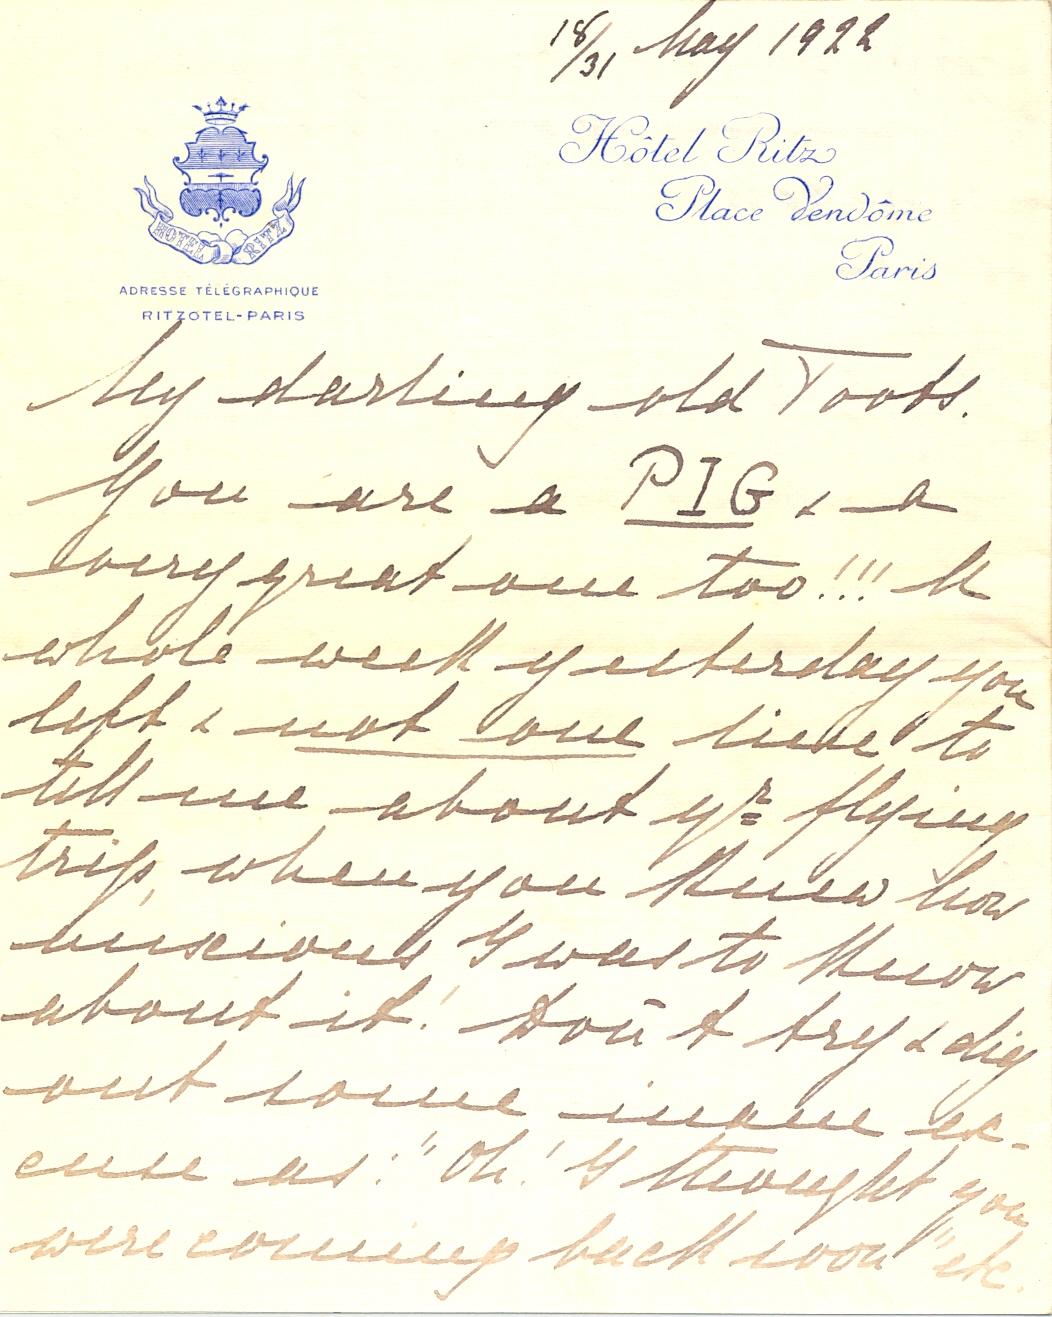 18/31 May 1922
Hôtel Ritz
Place Vendôme
Paris
HOTEL RITZ
ADRESSE TÉLÉGRAPHIQUE
RITZOTEL-PARIS
My darling old Toots.
You are a PIG & a
very great one too!!! A
whole week yesterday you
left & not one line to
tell me about yr flying
trip, when you knew how
anxious I was to know
about it! Don't try & dig
out some inane ex-
cuse as: "Oh! I thought you
were coming back soon" etc.